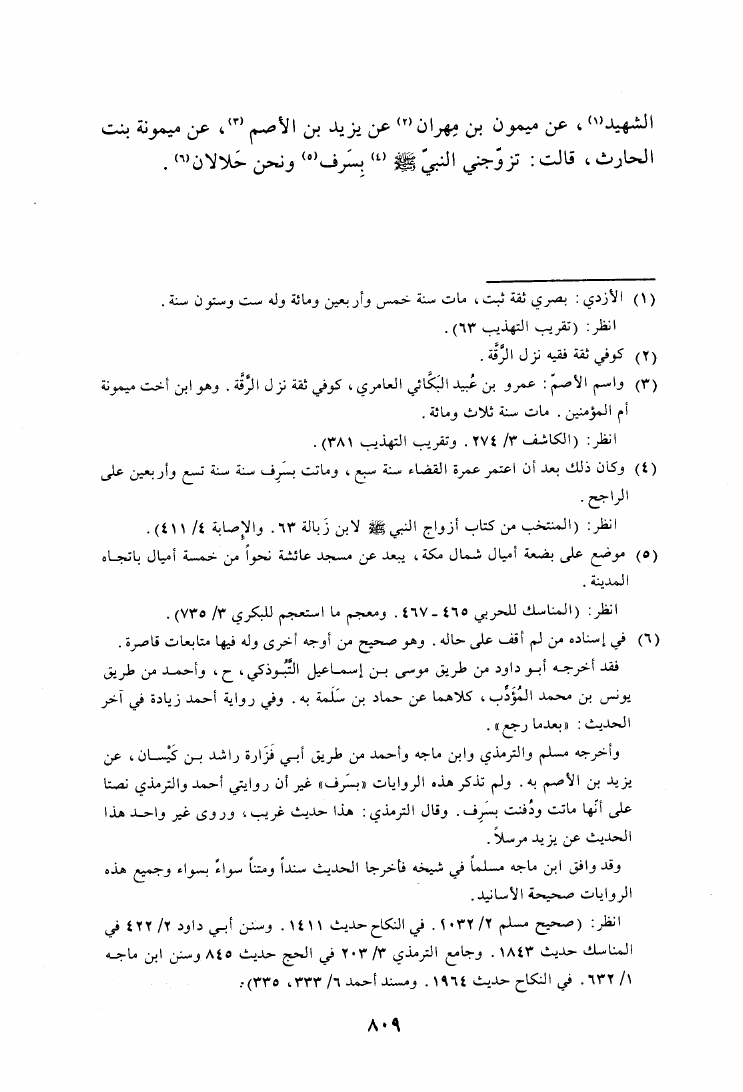 الشهيد(١) ، عن ميمون بن مِهران(٢) عن يزيد بن الأصم(٣) ، عن ميمونة بنت
الحارث ، قالت : تزوّجني النبيّ ﷺ (٤) بِسَرف(٥) ونحن حَلالان(٦) .
(١) الأزدي : بصري ثقة ثبت ، مات سنة خمس وأربعين ومائة وله ست وستون سنة .
انظر : (تقريب التهذيب ٦٣) .
(٢) كوفي ثقة فقيه نزل الرَّقَّة .
(٣) واسم الأصمّ : عمرو بن عُبيد البَكَّائي العامري ، كوفي ثقة نزل الرَّقَّة . وهو ابن أخت ميمونة
أم المؤمنين . مات سنة ثلاث ومائة .
انظر : (الكاشف ٣/ ٢٧٤ . وتقريب التهذيب ٣٨١) .
(٤) وكان ذلك بعد أن اعتمر عمرة القضاء سنة سبع ، وماتت بسَرِف سنة سنة تسع وأربعين على
الراجح .
انظر : (المنتخب من كتاب أزواج النبي ﷺ لابن زَبالة ٦٣ . والإصابة ٤/ ٤١١) .
(٥) موضع على بضعة أميال شمال مكة ، يبعد عن مسجد عائشة نحواً من خمسة أميال باتجاه
المدينة .
انظر : (المناسك للحربي ٤٦٥ ـ ٤٦٧ . ومعجم ما استعجم للبكري ٣/ ٧٣٥) .
(٦) في إسناده من لم أقف على حاله . وهو صحيح من أوجه أخرى وله فيها متابعات قاصرة .
فقد أخرجه أبو داود من طريق موسى بن إسماعيل التَّبُوذكي ، ح ، وأحمد من طريق
يونس بن محمد المُؤَدِّب ، كلاهما عن حماد بن سَلَمة به . وفي رواية أحمد زيادة في آخر
الحديث : «بعدما رجع» .
وأخرجه مسلم والترمذي وابن ماجه وأحمد من طريق أبي فَزَارة راشد بن كَيْسان ، عن
يزيد بن الأصم به . ولم تذكر هذه الروايات «بسَرف» غير أن روايتي أحمد والترمذي نصتا
على أنّها ماتت ودُفنت بسَرِف . وقال الترمذي : هذا حديث غريب ، وروى غير واحد هذا
الحديث عن يزيد مرسلاً .
وقد وافق ابن ماجه مسلماً في شيخه فأخرجا الحديث سنداً ومتناً سواءً بسواء وجميع هذه
الروايات صحيحة الأسانيد .
انظر : (صحيح مسلم ٢/ ١٠٣٢ . في النكاح حديث ١٤١١ . وسنن أبي داود ٢/ ٤٢٢ في
المناسك حديث ١٨٤٣ . وجامع الترمذي ٣/ ٢٠٣ في الحج حديث ٨٤٥ وسنن ابن ماجه
١/ ٦٣٢ . في النكاح حديث ١٩٦٤ . ومسند أحمد ٦/ ٣٣٣ ، ٣٣٥) .
٨٠٩